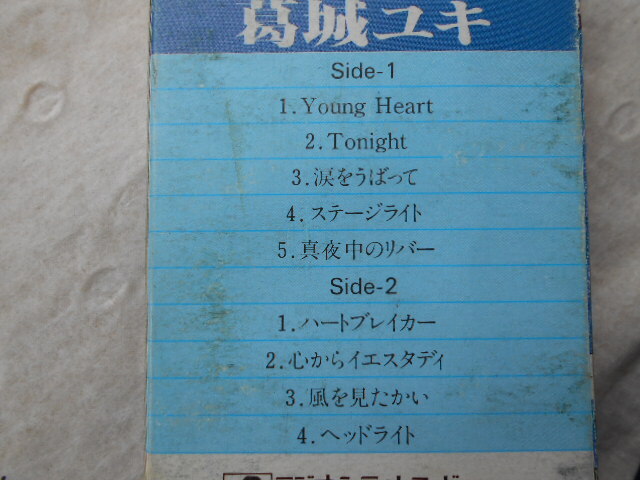 葛城ユキ
Side-1
1.Young Heart
2.Tonight
3.涙をうばって
4.ステージライト
5.真夜中のリバー
Side-2
1.ハートブレイカー
2.心からイエスタディ
3.風を見たかい
4.ヘッドライト